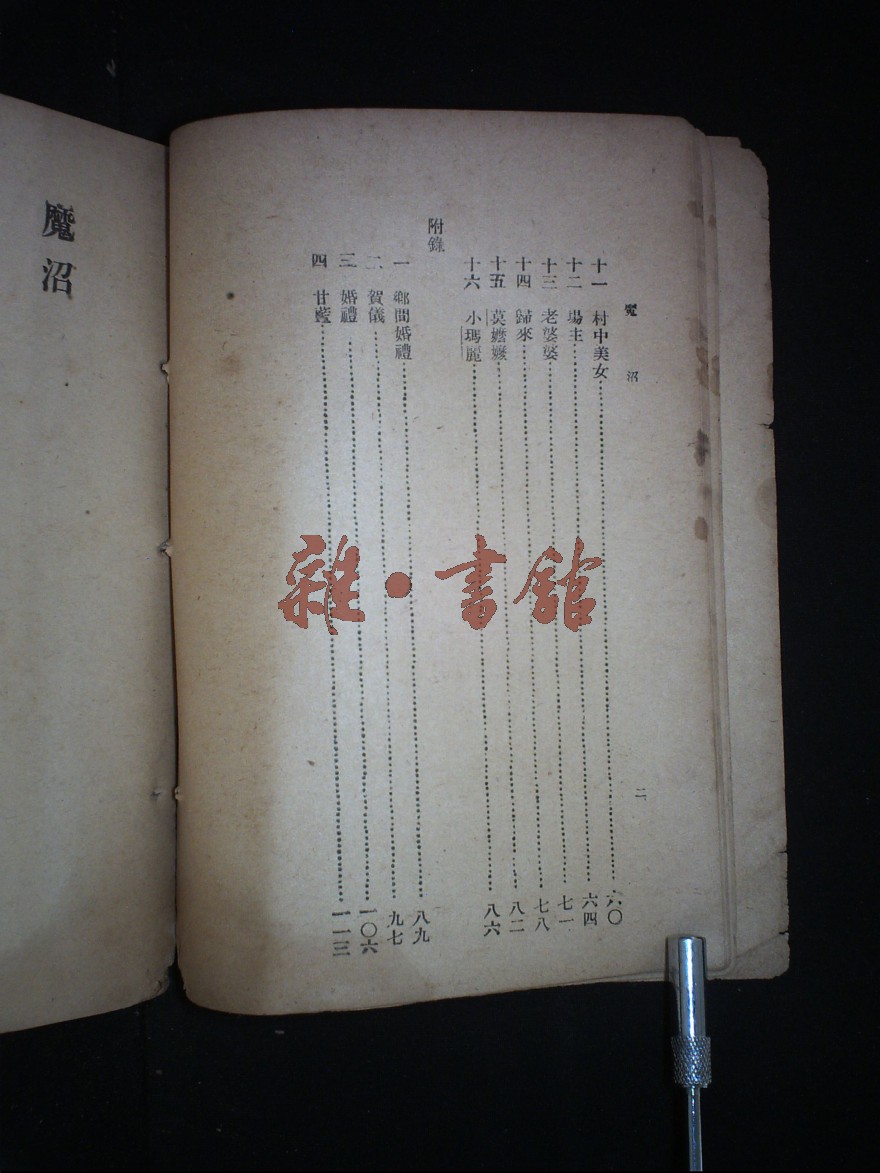 魔沼
二
十一 村中美女 六〇
十二 場主 六四
十三 老婆婆 七一
十四 歸來 七八
十五 莫嬤嬤 八二
十六 小瑪麗 八六
附錄
一 鄉間婚禮 八九
二 賀儀 九七
三 婚禮 一〇六
四 甘藍 一一三
魔沼
雜·書館